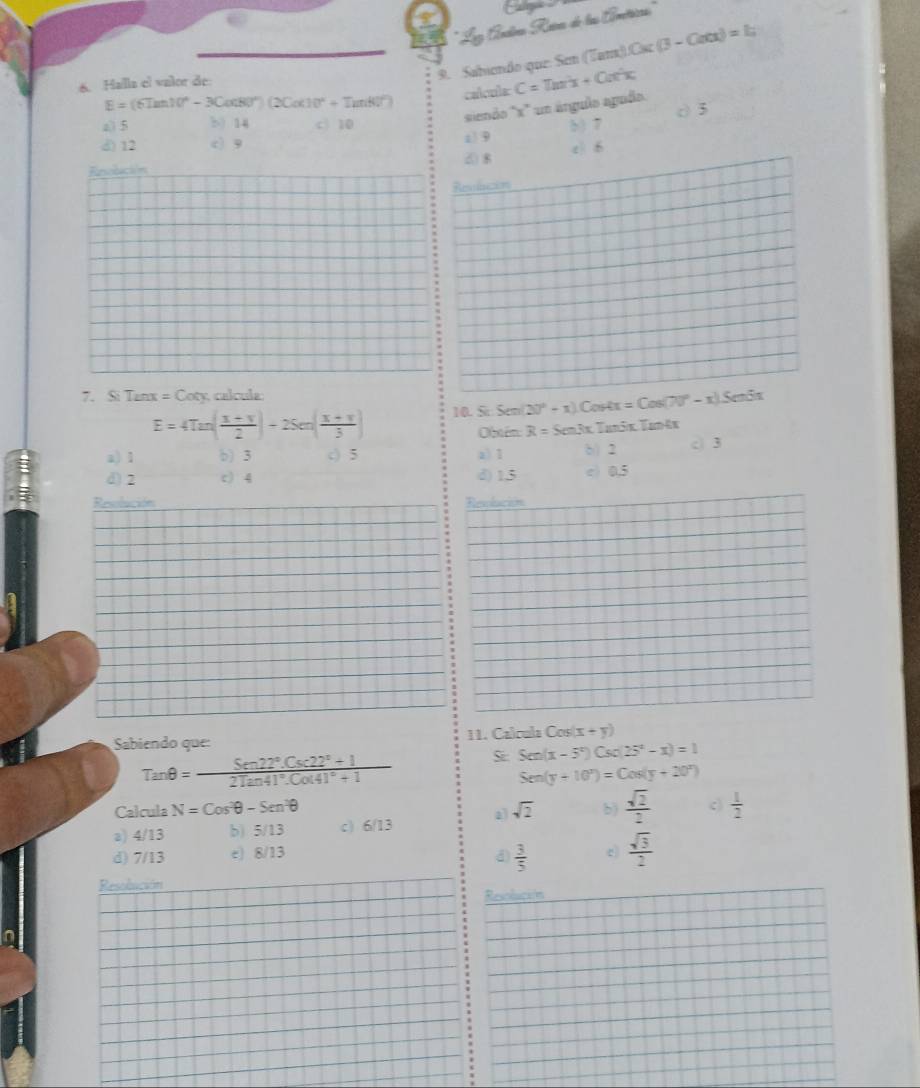 6. Halla el valor de:
E = (6Tan10° - 3Cot80°) (2Cot10° + Tan80°)
a) 5 b) 14 c) 10
d) 12 e) 9
Resolución
7. Si Tanx = Coty, calcula:
E = 4Tan((x + y)/2) + 2Sen((x + y)/3)
a) 1 b) 3 c) 5
d) 2 e) 4
Resolución
Sabiendo que:
Tanθ = (Sen22°.Csc22° + 1)/(2Tan41°.Cot41° + 1)
Calcula N = Cos²θ - Sen²θ
a) 4/13 b) 5/13 c) 6/13
d) 7/13 e) 8/13
Resolución
9. Sabiendo que: Sen (Tanx).Csc (3 - Cotx) = 1;
calcula: C = Tan²x + Cot²x;
siendo "x" un ángulo agudo.
a) 9 b) 7 c) 5
d) 8 e) 6
Resolución
10. Si: Sen(20° + x).Cos4x = Cos(70° - x).Sen5x
Obtén: R = Sen3x.Tan5x.Tan4x
a) 1 b) 2 c) 3
d) 1,5 e) 0,5
Resolución
11. Calcula Cos(x + y)
Si: Sen(x - 5°) Csc(25° - x) = 1
Sen(y + 10°) = Cos(y + 20°)
a) √2 b) √2/2 c) 1/2
d) 3/5 e) √3/2
Resolución